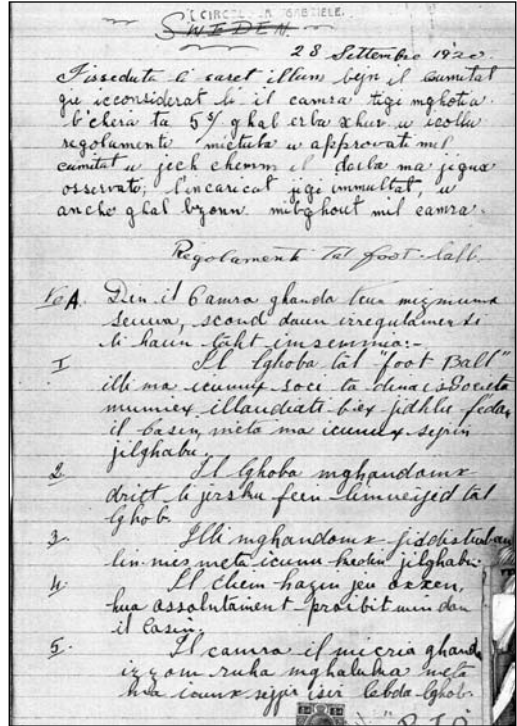 CIRCOLO S. GABRIELE.
SWEDEN.
28 Settembre 1920.
Fisseduta li saret illum bejn il cumitat
gie icconsiderat li il camra tigi mghotia
b'chera ta 5/ ghal erba xhur u icollu
regolamenti mictuba u approvati mil
cumitat u jech chemm il darba ma jigux
osservati, l'incaricat jigi immultat, u
anche ghal bzonn mibghout mil camra.
Regolamenti tal foot-ball.
No A. Din il Camra ghanda tcun mizmuma
sewwa, scond daun irregulamenti
li haun taht imsemmia:-
I Il lghoba tal "foot Ball"
illi ma icunux soci ta dina is Societa
mumiex illaudiati biex jidhlu fedan
il Casin, meta ma icunux sejrin
jilghabu.
2 Il lghoba mghandomx
dritt li jersku feen limweijed tal
lghob.
3. Illi mghandomx jiddisturbaw
lin-nies meta icunu hedin jilghabu.
4. Il cliem hazin jeu oxxen,
hua assolutament proibit min dan
il Casin.
5. Il camra il micria ghanda
izzom ruha mghaluka meta
ma icunx sejjer isir lebda lghob.